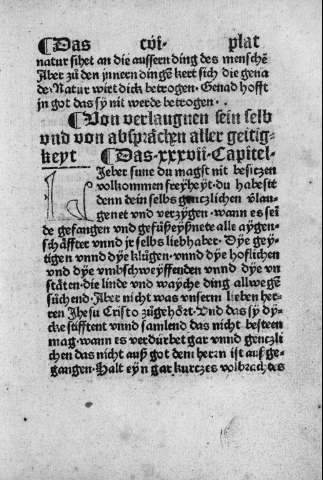 ¶Das cvi. plat
natur sihet an die aussern ding des menschē
Aber zů den jnnern dingē kert sich die gena
de. Natur wirt dick betrogen. Genad hofft
jn got das sy nit werde betrogen.
¶Von verlaugnen sein selb
vnd von absprächen aller geitig-
keyt ¶Das .xxxvii. Capitel.
Lieber sune du magst nit besitzen
volkommen freyheyt. du habest
denn dein selbs gentzlichen v̈lau-
genet vnd verzygen. wann es sei
de gefangen vnd gefüsseysnete alle aygen-
schäffter vnnd jr selbs liebhaber. Dye gey-
tigen vnnd dye klůgen. vnnd dye hoflichen
vnd dye vmbschweyffenden vnnd dye vn
stäten. die linde vnd wayche ding allwegē
sůchend. Aber nicht was vnserm lieben her-
ren Jhesu Cristo zůgehört. Vnd das sy dy-
cke stifftent vnnd samlend das nicht besteen
mag. wann es verdürbet gar vnnd gentzli
chen das nicht auß got dem herrn ist auß ge-
gangen. Halt eyn gar kurtzes volbrachtes